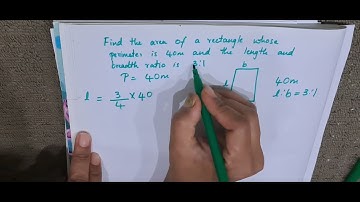 Find the area of a rectangle whose
perimeter is 40m and the length and
breadth ratio is 3:1
P = 40m
b
l
40m
l:b = 3:1
l = 3/4 × 40